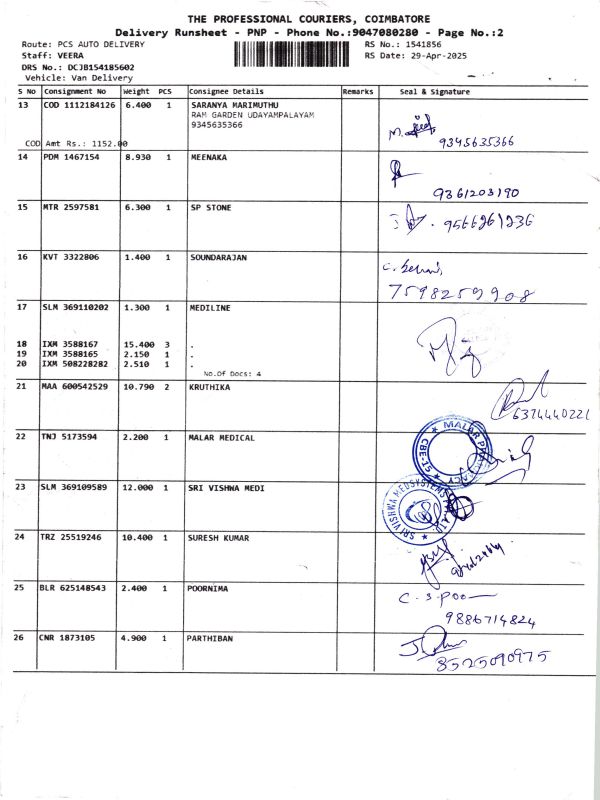 THE PROFESSIONAL COURIERS, COIMBATORE
Delivery Runsheet - PNP - Phone No.:9047080280 - Page No.:2
Route: PCS AUTO DELIVERY
RS No.: 1541856
Staff: VEERA
RS Date: 29-Apr-2025
DRS No.: DCJB154185602
Vehicle: Van Delivery
S No Consignment No Weight PCS Consignee Details Remarks Seal & Signature
13 COD 1112184126 6.400 1 SARANYA MARIMUTHU
RAM GARDEN UDAYAMPALAYAM
9345635366
COD Amt Rs.: 1152.00
9345635366
14 PDM 1467154 8.930 1 MEENAKA
9361203190
15 MTR 2597581 6.300 1 SP STONE
9566261236
16 KVT 3322806 1.400 1 SOUNDARAJAN
7598259908
17 SLM 369110202 1.300 1 MEDILINE
18 IXM 3588167 15.400 3 .
19 IXM 3588165 2.150 1 .
20 IXM 508228282 2.510 1 .
No.Of Docs: 4
21 MAA 600542529 10.790 2 KRUTHIKA
6374440221
22 TNJ 5173594 2.200 1 MALAR MEDICAL
MALAR PHARMACY
23 SLM 369109589 12.000 1 SRI VISHWA MEDI
SRI VISHWA MEDSYSTEMS
24 TRZ 25519246 10.400 1 SURESH KUMAR
25 BLR 625148543 2.400 1 POORNIMA
C. S. Poo
9886714824
26 CNR 1873105 4.900 1 PARTHIBAN
8525090975